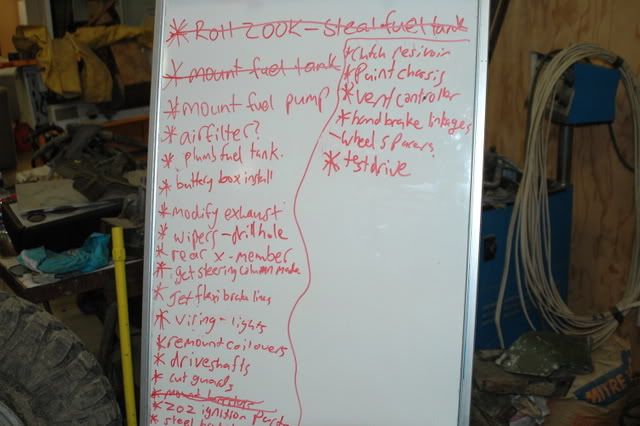 * Roll ZOOK - Steal fuel tank
* mount fuel tank
* mount fuel pump
* airfilter?
* plumb fuel tank.
* battery box install
* modify exhaust
* wipers - drill hole
* rear x-member
* get steering column made
* get flexi brake lines
* wiring - lights
* remount coilovers
* driveshafts
* cut guards
* mount
* 202 ignition
* steel
* clutch resivoir
* Paint chassis
* vent controller
* handbrake linkages
- wheel spacers
* test drive
MITRE